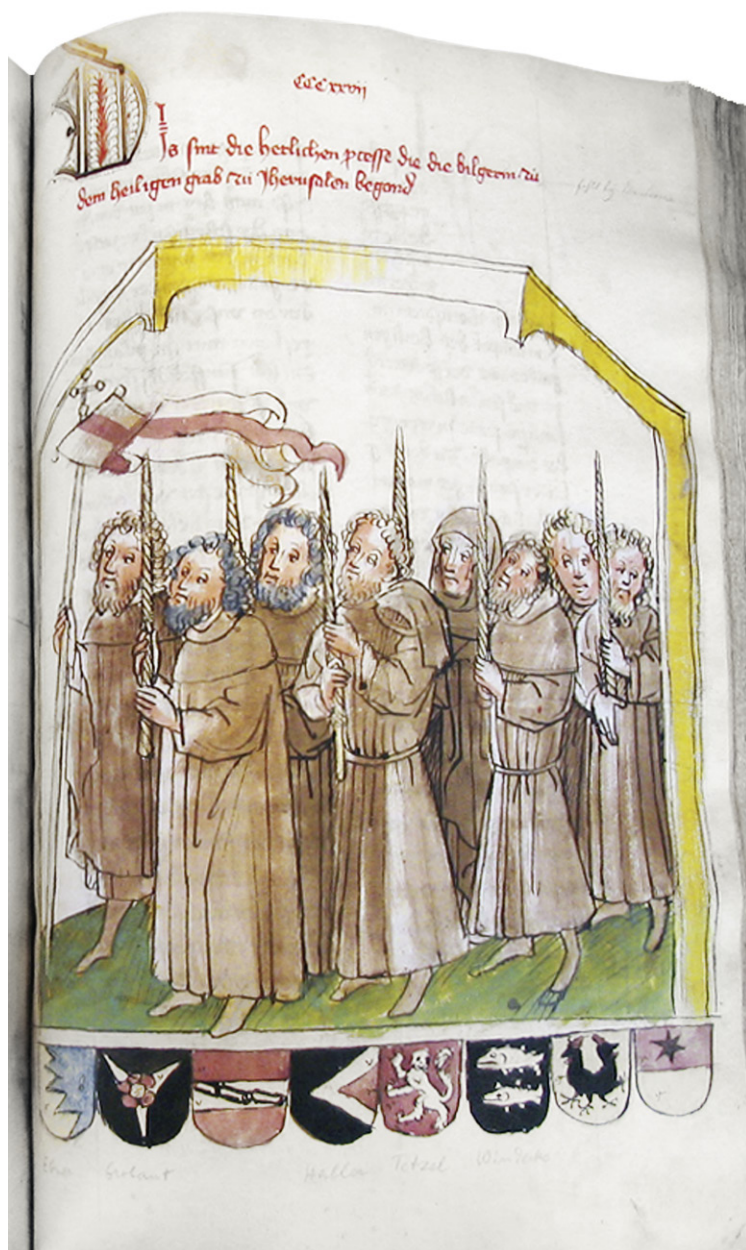 CCCxxvij
Dis sint die herlichen pcesse die die bilgerin zü
dem heiligen grab zü Jherusalen begond
Haller Tetzel